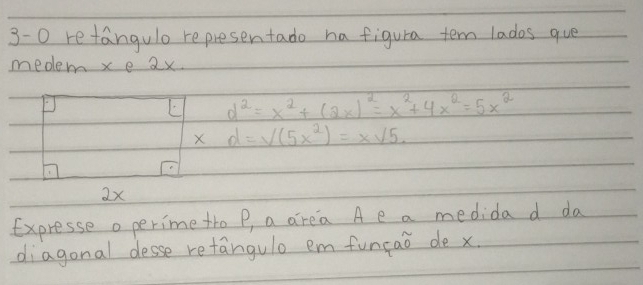 3-O retângulo representado na figura tem lados que
medem x e 2x.
d² = x² + (2x)² = x² + 4x² = 5x²
x d = √(5x²) = x√5.
2x
Expresse o perímetro P, a área A e a medida d da
diagonal desse retângulo em função de x.